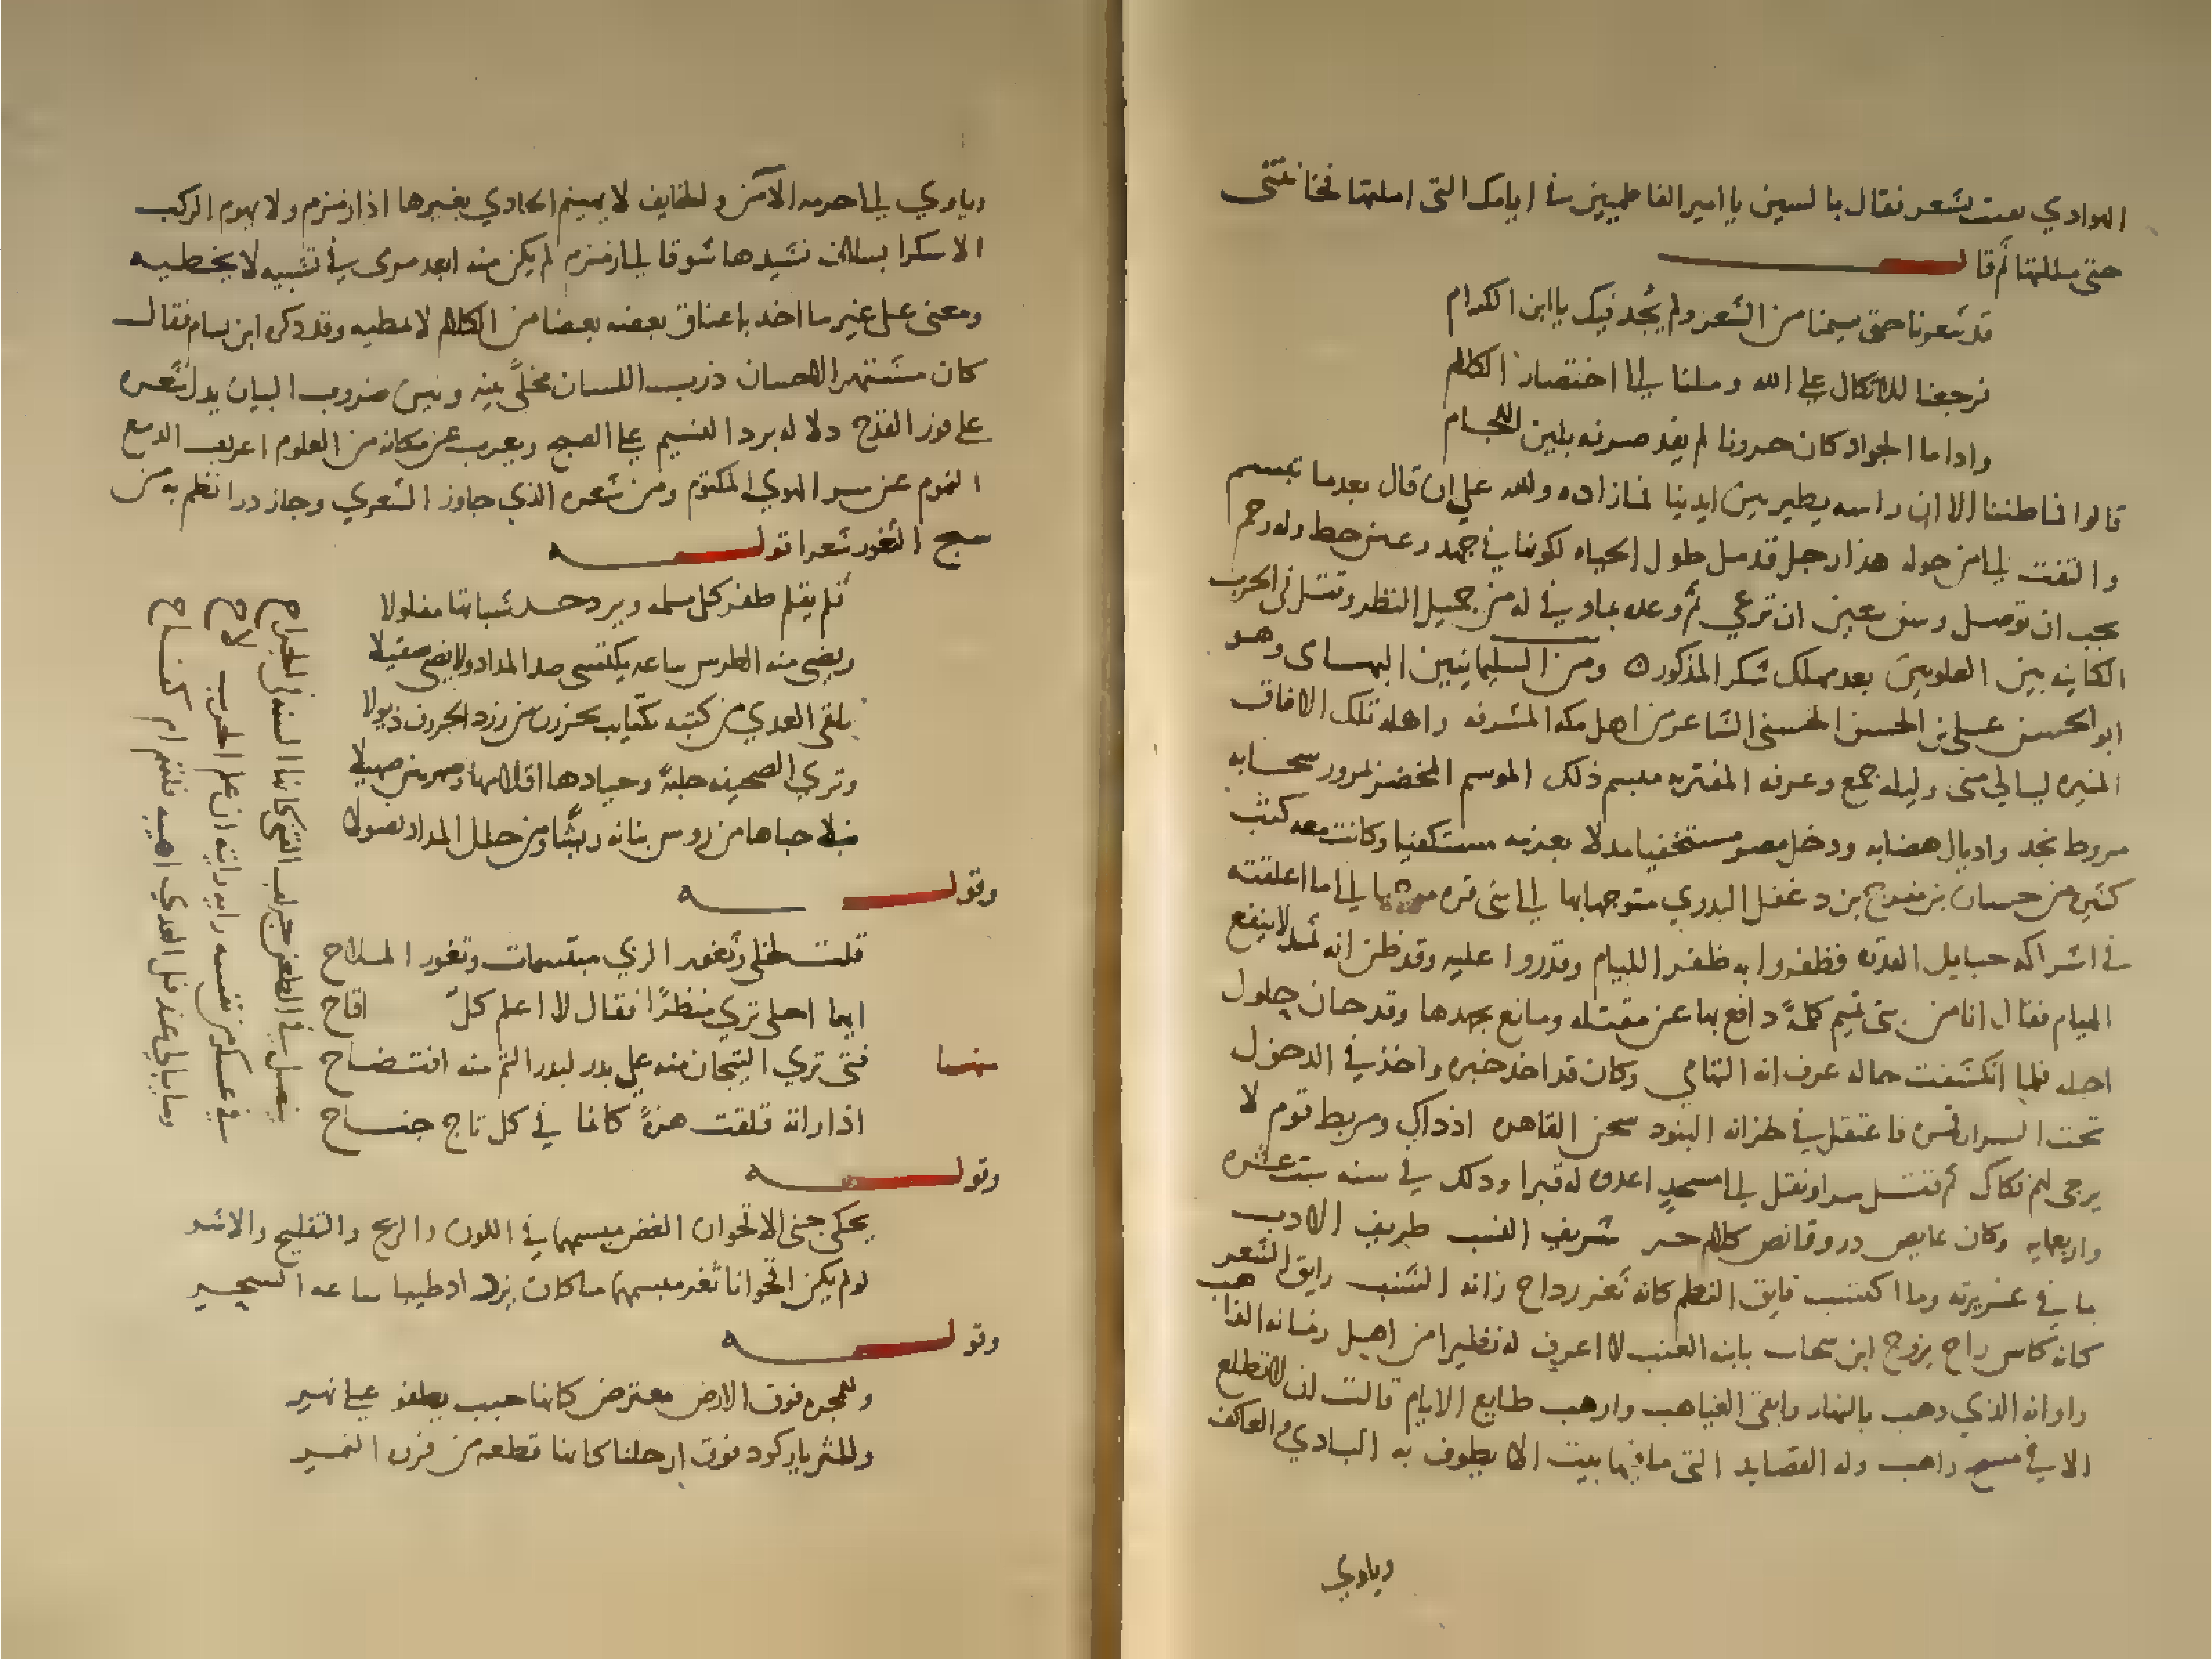 الهوادي بعت بشعر فقال بالسين يا امير الفاطميين في ايامك التي املتها
حتى مللتها ثم قال
قد شعرنا حتى سيمنا من الشعر ولم يُجد فيك يا ابن الكرام
فرجعنا للاتكال على الله وملنا الى اختصار الكلام
واداما الجواد كان حرونا لم يفد صرفه بلين اللجام
قالوا فما ظننا الا ان راسه يطير بين ايدينا فما زاده والله على ان قال بعدما تبسم
والتفت الى من حوله هذا رجل قد مل طول الحياه لكونها في جهد وغض حظ وله رحم
يجب ان توصل وسن معين ان ترعى ثم وعده بماد في له من جميل النظر وقتل في الحرب
الكاينه بين العلويين بعد مهلك شكر المذكور ومن السليمانيين التهامى وهو
ابو الحسن على بن الحسن الحسنى الشاعر من اهل مكه المشرفه واهله تلك الافاق
المنيره ليالي منى وليله جمع وعرفه المفتره مبسم ذلك الموسم المخضر لمرور سحابه
مروط نجد واديال هضابه ودخل مصر مستخفيا مدلا بعزمه مستكفيا وكانت معه كتب
كثيره من حسان بن مفرج بن دغفل البدري متوجها بها الى بنى قره الى ما اعلقته
في اشراكه حبايل الغدره فظفروا به ظفر الليام وقدروا عليه وقد ظن انه
فقال انا من بنى تميم كلمةً دافع بها عن مقتله ومانع بجهدها وقد حان حلول
اجله فلما انكشفت حاله عرف انه التهامي وكان قد اخذ خبره واخذ في الدخول
تحت فاعتقل في خزانه البنود سجن القاهره اذ ذاك ومربط قوم لا
يرجى لهم فكاك ثم قتل سرا ونقل الى مسجدٍ اعدوه له قبرا ودلك في سنه ست عشره
واربعمايه وكان غايص در وقانص كلام حر شريف النسب طريف الادب
بما في غريزته وما اكتسب فايق النظم كانه ثغر رداح زانه الشنب رايق الشعر
كانه كاس راح يزوج ابن سحاب بابنه العنب لا اعرف له نظيرا من اهل زمانه
واوانه الذي دهب بالنهار وابقى الغياهب وارهب طلايع الايام قالت لن لا تطلع
الا في مسح راهب وله القصايد التى ما فيها بيت الا يطوف به البادي والعاكف
وياوي
وياوي الى احرمه الآمن والخايف لا يهينم الحادي بغيرها اذا زمزم ولا يهوم الركب
الا سكرا بسلاف نشيدها شوقا الى زمزم لم يكن منه ابعد مرمى في تشبيه لا يخطيه
ومعنى على غير ما اخد باعناق بعضه بعضا من الكلام لا يمطيه وقد دكره ابن بسام فقال
كان مشتهر الاحسان ذرب اللسان مخلىً بينه وبين ضروب البيان يدل شعره
على فوز القدح دلاله برد النسيم على الصبح ويعرب عن مكانه من العلوم اعراب الدمع
النموم عن سر الهوي المكتوم ومن شعره الذي جاوز الشعري وجاز درا نظم به من
سبج الثغور شعرا قوله
قلم يقلم ظفر كل ملمه ويرد حد شباتها مفلولا
ويضى منه الطرس ساعه يكتسى صدا المداد ولا يضى صقيلا
يلقى العدي من كتبه بكتايب يجررن من زرد الحروف ذيولا
وتري الصحيفه حلبةً وجيادها اقلامها وصريرهن صهيلا
حباها من روس بنانه ريشًا ومن حلل المداد نصولا
وقوله
قلت لخلى وثغور الربي مبتسمات وثغور الملاح
ايما احلى تري منظرًا فقال لا اعلم كلٌ اقاح
منها
فتى تري التيجان منه على بدر لبدر التم منه افتضاح
اذا راته قلقت هزةً كانما في كل تاج جناح
ينصل في الطعن حراب القنى كانها السنه في الجراح
في عسكر من نفسه رايه رايته ان علم الحرب لاح
وما يبالي عند فل العدي اهيبه فلتهم ام كفاح
وقوله
يحكى جنى الاقحوان الغض مبسمها في اللون والريح والتفليج والاشر
لو لم يكن اقحوانا ثغر مبسمها ما كان يزداد طيبا ساعه السحر
وقوله
وللمجره فوق الارض معترض كانها حبب يطفو على نهر
وللثريا ركود فوق ارحلنا كانها قطعه من فروه النمر